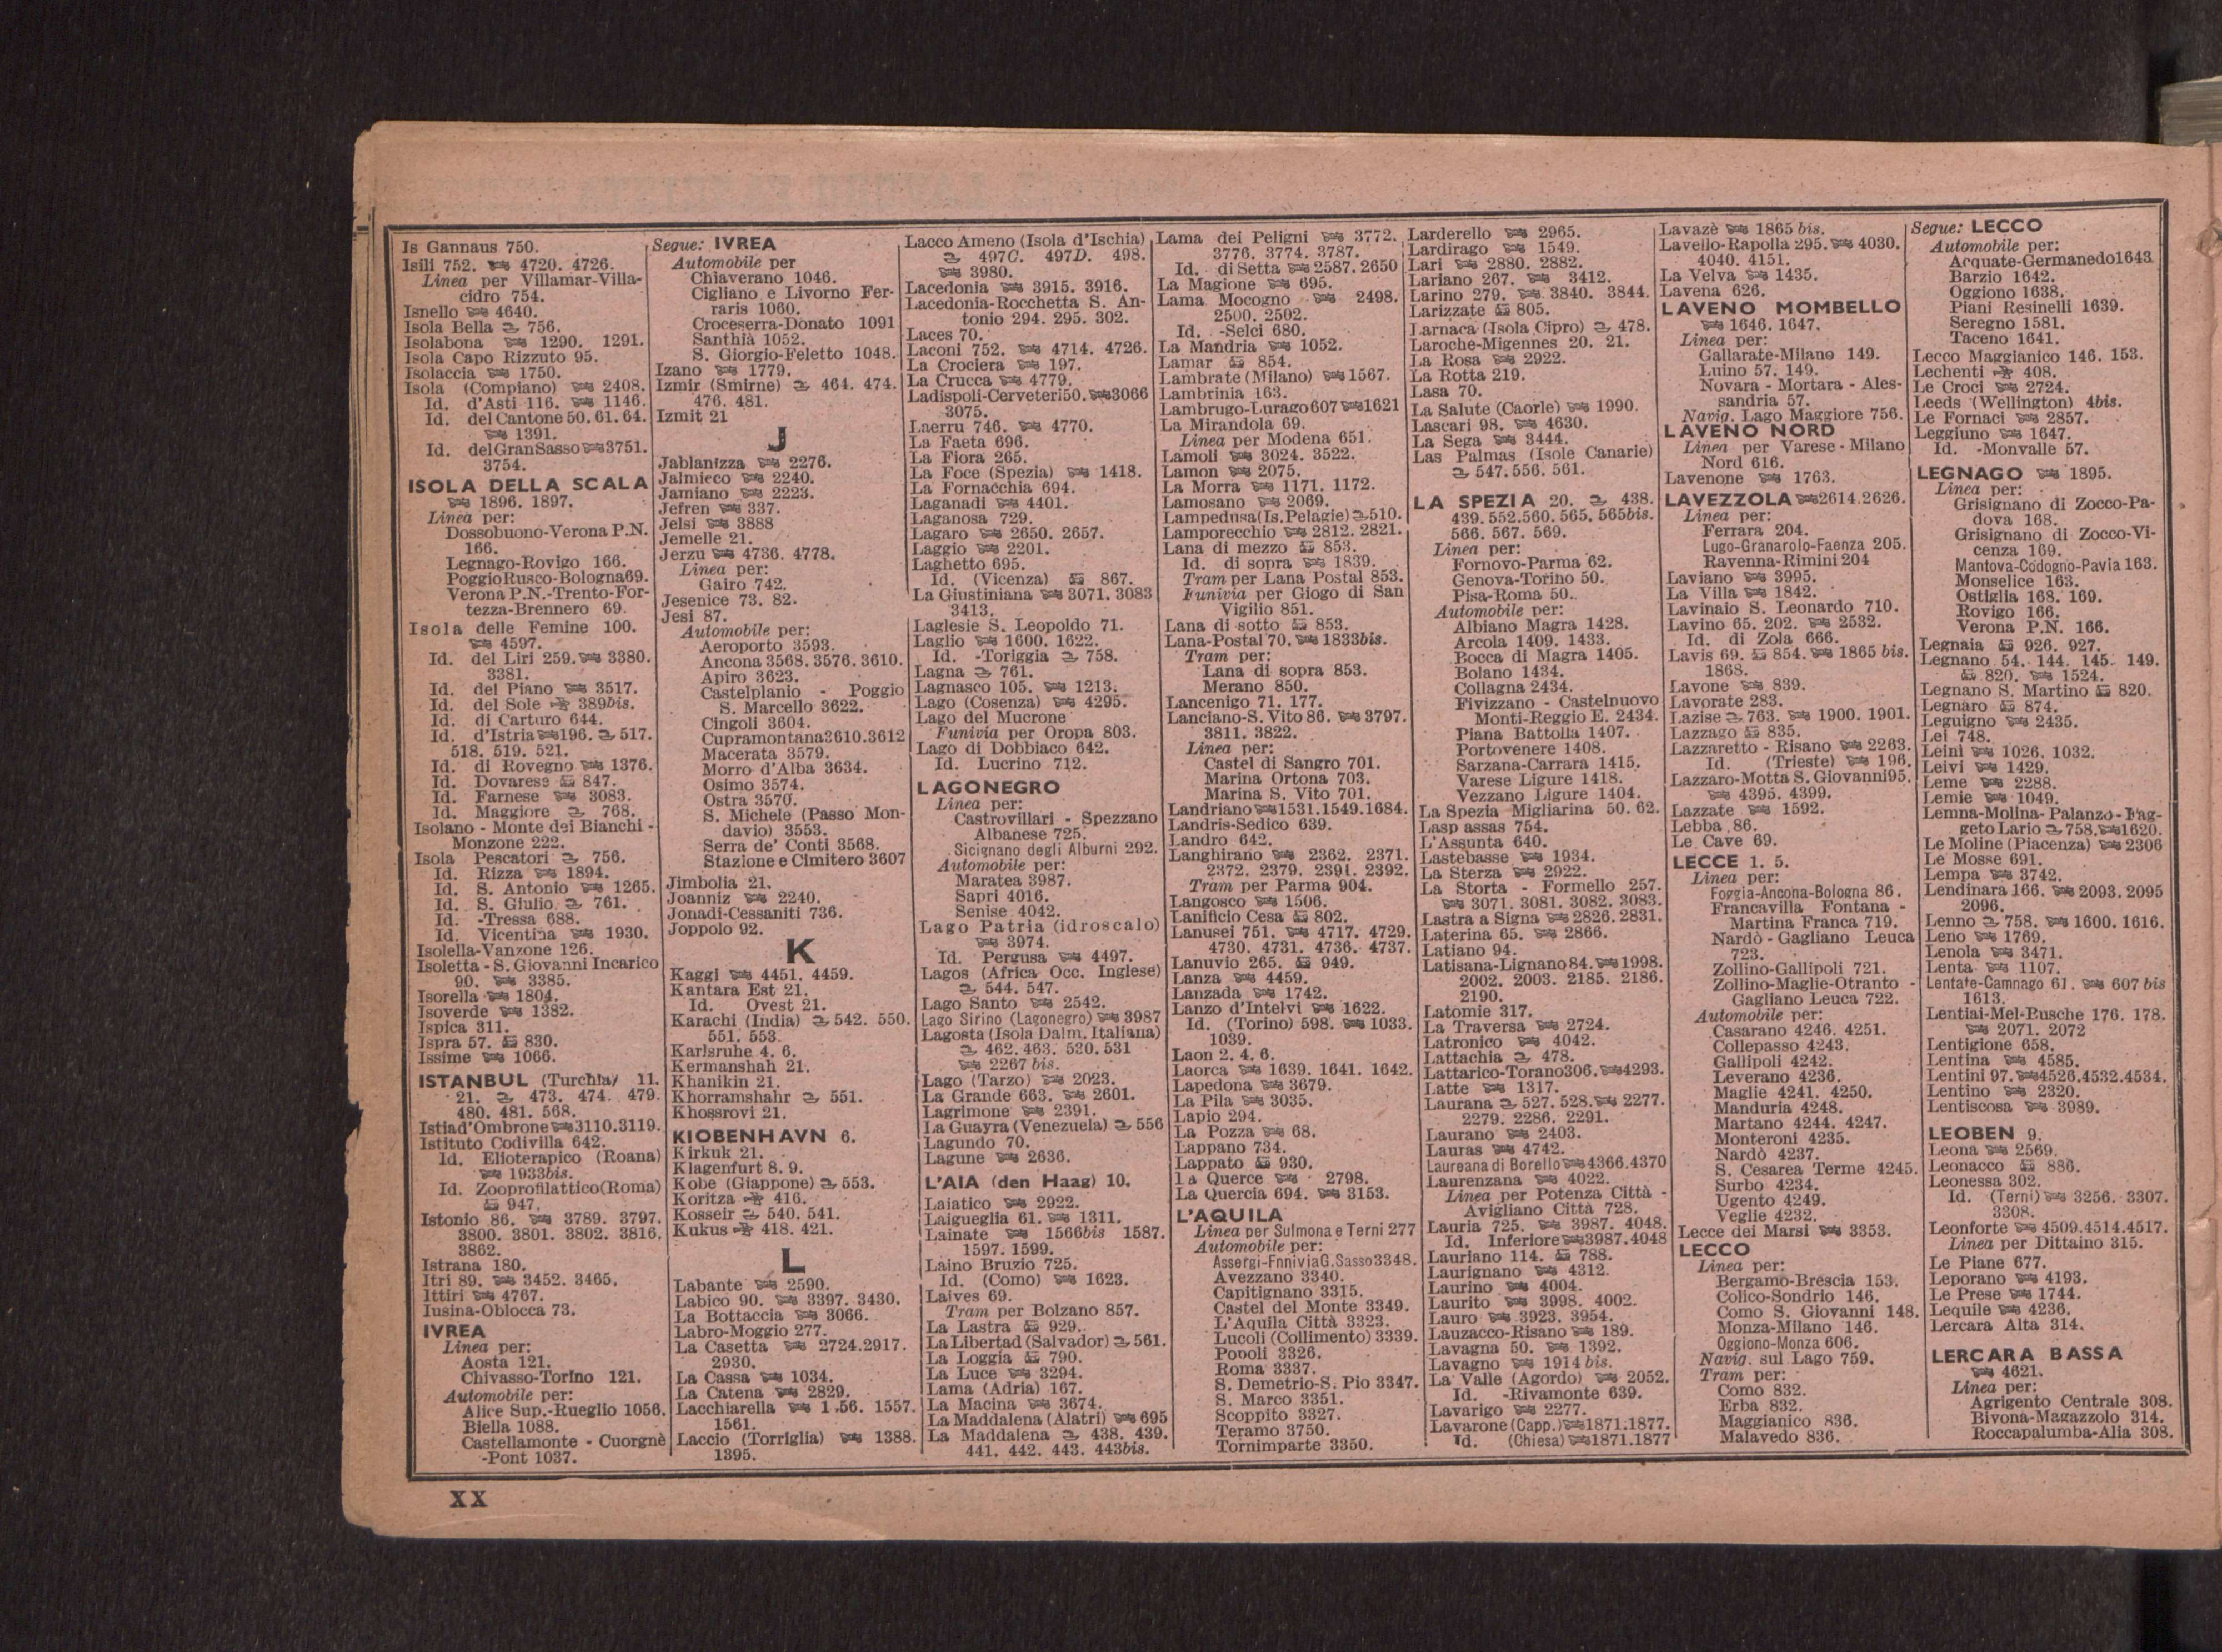 Is Gannaus 750.
Isili 752. 4720. 4726.
Linea per Villamar-Villa-
cidro 754.
Isnello 4640.
Isola Bella 756.
Isolabona 1290. 1291.
Isola Capo Rizzuto 95.
Isolaccia 1750.
Isola (Compiano) 2408.
Id. d'Asti 116. 1146.
Id. del Cantone 50. 61. 64.
1391.
Id. del Gran Sasso 3751.
3754.
ISOLA DELLA SCALA
1896. 1897.
Linea per:
Dossobuono-Verona P.N.
166.
Legnago-Rovigo 166.
Poggio Rusco-Bologna 69.
Verona P.N.-Trento-For-
tezza-Brennero 69.
Isola delle Femine 100.
4597.
Id. del Liri 259. 3380.
3381.
Id. del Piano 3517.
Id. del Sole 389bis.
Id. di Carturo 644.
Id. d'Istria 196. 517.
518. 519. 521.
Id. di Rovegno 1376.
Id. Dovarese 847.
Id. Farnese 3083.
Id. Maggiore 768.
Isolano - Monte dei Bianchi -
Monzone 222.
Isola Pescatori 756.
Id. Rizza 1894.
Id. S. Antonio 1265.
Id. S. Giulio 761.
Id. -Tressa 688.
Id. Vicentina 1930.
Isolella-Vanzone 126.
Isoletta - S. Giovanni Incarico
90. 3385.
Isorella 1804.
Isoverde 1382.
Ispica 311.
Ispra 57. 830.
Issime 1066.
ISTANBUL (Turchia) 11.
21. 473. 474. 479.
480. 481. 568.
Istia d'Ombrone 3110. 3119.
Istituto Codivilla 642.
Id. Elioterapico (Roana)
1933bis.
Id. Zooprofilattico (Roma)
947.
Istonio 86. 3789. 3797.
3800. 3801. 3802. 3816.
3862.
Istrana 180.
Itri 89. 3452. 3465.
Ittiri 4767.
Iusina-Oblocca 73.
IVREA
Linea per:
Aosta 121.
Chivasso-Torino 121.
Automobile per:
Alice Sup.-Rueglio 1056.
Biella 1088.
Castellamonte - Cuorgnè
-Pont 1037.
Segue: IVREA
Automobile per
Chiaverano 1046.
Cigliano e Livorno Fer-
raris 1060.
Croceserra-Donato 1091
Santhià 1052.
S. Giorgio-Feletto 1048.
Izano 1779.
Izmir (Smirne) 464. 474.
476. 481.
Izmit 21
J
Jablanizza 2276.
Jalmicco 2240.
Jamiano 2223.
Jefren 337.
Jelsi 3888
Jemelle 21.
Jerzu 4736. 4778.
Linea per:
Gairo 742.
Jesenice 73. 82.
Jesi 87.
Automobile per:
Aeroporto 3593.
Ancona 3568. 3576. 3610.
Apiro 3623.
Castelplanio - Poggio
S. Marcello 3622.
Cingoli 3604.
Cupramontana 3610. 3612
Macerata 3579.
Morro d'Alba 3634.
Osimo 3574.
Ostra 3570.
S. Michele (Passo Mon-
davio) 3553.
Serra de' Conti 3568.
Stazione e Cimitero 3607
Jimbolia 21.
Joanniz 2240.
Jonadi-Cessaniti 736.
Joppolo 92.
K
Kaggi 4451. 4459.
Kantara Est 21.
Id. Ovest 21.
Karachi (India) 542. 550.
551. 553.
Karlsruhe 4. 6.
Kermanshah 21.
Khanikin 21.
Khorramshahr 551.
Khosrovi 21.
KIOBENHAVN 6.
Kirkuk 21.
Klagenfurt 8. 9.
Kobe (Giappone) 553.
Koritza 416.
Kosseir 540. 541.
Kukus 418. 421.
L
Labante 2590.
Labico 90. 3397. 3430.
La Bottaccia 3066.
Labro-Moggio 277.
La Casetta 2724. 2917.
2930.
La Cassa 1034.
La Catena 2829.
Lacchiarella 1557.
1561.
Laccio (Torriglia) 1388.
1395.
Lacco Ameno (Isola d'Ischia)
497C. 497D. 498.
3980.
Lacedonia 3915. 3916.
Lacedonia-Rocchetta S. An-
tonio 294. 295. 302.
Laces 70.
Laconi 752. 4714. 4726.
La Crociera 197.
La Crucca 4779.
Ladispoli-Cerveteri 50. 3066
3075.
Laerru 746. 4770.
La Faeta 696.
La Fiora 265.
La Foce (Spezia) 1418.
La Fornacchia 694.
Laganadi 4401.
Laganosa 729.
Lagaro 2650. 2657.
Laggio 2201.
Laghetto 695.
Id. (Vicenza) 867.
La Giustiniana 3071. 3083
3413.
Laglesie S. Leopoldo 71.
Laglio 1600. 1622.
Id. -Toriggia 758.
Lagna 761.
Lagnasco 105. 1213.
Lago (Cosenza) 4295.
Lago del Mucrone
Funivia per Oropa 803.
Lago di Dobbiaco 642.
Id. Lucrino 712.
LAGONEGRO
Linea per:
Castrovillari - Spezzano
Albanese 725.
Sicignano degli Alburni 292.
Automobile per:
Maratea 3987.
Sapri 4016.
Senise 4042.
Lago Patria (idroscalo)
3974.
Id. Pergusa 4497.
Lagos (Africa Occ. Inglese)
544. 547.
Lago Santo 2542.
Lago Sirino (Lagonegro) 3987
Lagosta (Isola Dalm. Italiana)
462. 463. 530. 531
2267 bis.
Lago (Tarzo) 2023.
La Grande 663. 2601.
Lagrimone 2391.
La Guayra (Venezuela) 556
Lagundo 70.
Lagune 2636.
L'AIA (den Haag) 10.
Laiatico 2922.
Laigueglia 61. 1311.
Lainate 1566bis 1587.
1597. 1599.
Laino Bruzio 725.
Id. (Como) 1623.
Laives 69.
Tram per Bolzano 857.
La Lastra 929.
La Libertad (Salvador) 561.
La Loggia 790.
La Luce 3294.
Lama (Adria) 167.
La Macina 3674.
La Maddalena (Alatri) 695
La Maddalena 438. 439.
441. 442. 443. 443bis.
Lama dei Peligni 3772.
3776. 3774. 3787.
Id. di Setta 2587. 2650
La Magione 695.
Lama Mocogno 2498.
2500. 2502.
Id. -Selci 680.
La Mandria 1052.
Lamar 854.
Lambrate (Milano) 1567.
Lambrinia 163.
Lambrugo-Lurago 607 1621
La Mirandola 69.
Linea per Modena 651.
Lamoli 3024. 3522.
Lamon 2075.
La Morra 1171. 1172.
Lamosano 2069.
Lampedusa (Is. Pelagie) 510.
Lamporecchio 2812. 2821.
Lana di mezzo 853.
Id. di sopra 1839.
Tram per Lana Postal 853.
Funivia per Giogo di San
Vigilio 851.
Lana di sotto 853.
Lana-Postal 70. 1833bis.
Tram per:
Lana di sopra 853.
Merano 850.
Lancenigo 71. 177.
Lanciano-S. Vito 86. 3797.
3811. 3822.
Linea per:
Castel di Sangro 701.
Marina Ortona 703.
Marina S. Vito 701.
Landriano 1531. 1549. 1684.
Landris-Sedico 639.
Landro 642.
Langhirano 2362. 2371.
2372. 2379. 2391. 2392.
Tram per Parma 904.
Langosco 1506.
Lanificio Cesa 802.
Lanusei 751. 4717. 4729.
4730. 4731. 4736. 4737.
Lanuvio 265. 949.
Lanza 4459.
Lanzada 1742.
Lanzo d'Intelvi 1622.
Id. (Torino) 598. 1033.
1039.
Laon 2. 4. 6.
Laorca 1639. 1641. 1642.
Lapedona 3679.
La Pila 3035.
Lapio 294.
La Pozza 68.
Lappano 734.
Lappato 930.
La Querce 2798.
La Quercia 694. 3153.
L'AQUILA
Linea per Sulmona e Terni 277
Automobile per:
Assergi-Fnnivia G. Sasso 3348.
Avezzano 3340.
Capitignano 3315.
Castel del Monte 3349.
L'Aquila Città 3323.
Lucoli (Collimento) 3339.
Popoli 3326.
Roma 3337.
S. Demetrio-S. Pio 3347.
S. Marco 3351.
Scoppito 3327.
Teramo 3750.
Tornimparte 3350.
Larderello 2965.
Lardirago 1549.
Lari 2880. 2882.
Lariano 267. 3412.
Larino 279. 3840. 3844.
Larizzate 805.
Larnaca (Isola Cipro) 478.
Laroche-Migennes 20. 21.
La Rosa 2922.
La Rotta 219.
Lasa 70.
La Salute (Caorle) 1990.
Lascari 98. 4630.
La Sega 3444.
Las Palmas (Isole Canarie)
547. 556. 561.
LA SPEZIA 20. 438.
439. 552. 560. 565. 565bis.
566. 567. 569.
Linea per:
Fornovo-Parma 62.
Genova-Torino 50.
Pisa-Roma 50.
Automobile per:
Albiano Magra 1428.
Arcola 1409. 1433.
Bocca di Magra 1405.
Bolano 1434.
Collagna 2434.
Fivizzano - Castelnuovo
Monti-Reggio E. 2434.
Piana Battolla 1407.
Portovenere 1408.
Sarzana-Carrara 1415.
Varese Ligure 1418.
Vezzano Ligure 1404.
La Spezia Migliarina 50. 62.
Lasp assas 754.
L'Assunta 640.
Lastebasse 1934.
La Sterza 2922.
La Storta - Formello 257.
3071. 3081. 3082. 3083.
Lastra a Signa 2826. 2831.
Laterina 65. 2866.
Latiano 94.
Latisana-Lignano 84. 1998.
2002. 2003. 2185. 2186.
2190.
Latomie 317.
La Traversa 2724.
Latronico 4042.
Lattachia 478.
Lattarico-Torano 306. 4293.
Latte 1317.
Laurana 527. 528. 2277.
2279. 2286. 2291.
Laurano 2403.
Lauras 4742.
Laureana di Borello 4366. 4370
Laurenzana 4022.
Linea per Potenza Città -
Avigliano Città 728.
Lauria 725. 3987. 4048.
Id. Inferiore 3987. 4048
Lauriano 114. 788.
Laurignano 4312.
Laurino 4004.
Laurito 3998. 4002.
Lauro 3923. 3954.
Lauzacco-Risano 189.
Lavagna 50. 1392.
Lavagno 1914 bis.
La Valle (Agordo) 2052.
Id. -Rivamonte 639.
Lavarigo 2277.
Lavarone (Capp.) 1871. 1877.
Id. (Chiesa) 1871. 1877
Lavazè 1865 bis.
Lavello-Rapolla 295. 4030.
4040. 4151.
La Velva 1435.
Lavena 626.
LAVENO MOMBELLO
1646. 1647.
Linea per:
Gallarate-Milano 149.
Luino 57. 149.
Novara - Mortara - Ales-
sandria 57.
Navig. Lago Maggiore 756.
LAVENO NORD
Linea per Varese - Milano
Nord 616.
Lavenone 1763.
LAVEZZOLA 2614. 2626.
Linea per:
Ferrara 204.
Lugo-Granarolo-Faenza 205.
Ravenna-Rimini 204
Laviano 3995.
La Villa 1842.
Lavinaio S. Leonardo 710.
Lavino 65. 202. 2532.
Id. di Zola 666.
Lavis 69. 854. 1865 bis.
1868.
Lavone 839.
Lavorate 283.
Lazise 763. 1900. 1901.
Lazzago 835.
Lazzaretto - Risano 2263.
Id. (Trieste) 196.
Lazzaro-Motta S. Giovanni 95.
4395. 4399.
Lazzate 1592.
Lebba 86.
Le Cave 69.
LECCE 1. 5.
Linea per:
Foggia-Ancona-Bologna 86.
Francavilla Fontana -
Martina Franca 719.
Nardò - Gagliano Leuca
723.
Zollino-Gallipoli 721.
Zollino-Maglie-Otranto -
Gagliano Leuca 722.
Automobile per:
Casarano 4246. 4251.
Collepasso 4243.
Gallipoli 4242.
Leverano 4236.
Maglie 4241. 4250.
Manduria 4248.
Martano 4244. 4247.
Monteroni 4235.
Nardò 4237.
S. Cesarea Terme 4245.
Surbo 4234.
Ugento 4249.
Veglie 4232.
Lecce dei Marsi 3353.
LECCO
Linea per:
Bergamo-Brescia 153.
Colico-Sondrio 146.
Como S. Giovanni 148.
Monza-Milano 146.
Oggiono-Monza 606.
Navig. sul Lago 759.
Tram per:
Como 832.
Erba 832.
Maggianico 836.
Malavedo 836.
Segue: LECCO
Automobile per:
Acquate-Germanedo 1643
Barzio 1642.
Oggiono 1638.
Piani Resinelli 1639.
Seregno 1581.
Taceno 1641.
Lecco Maggianico 146. 153.
Lechenti 408.
Le Croci 2724.
Leeds (Wellington) 4bis.
Le Fornaci 2857.
Leggiuno 1647.
Id. -Monvalle 57.
LEGNAGO 1895.
Linea per:
Grisignano di Zocco-Pa-
dova 168.
Grisignano di Zocco-Vi-
cenza 169.
Mantova-Codogno-Pavia 163.
Monselice 163.
Ostiglia 168. 169.
Rovigo 166.
Verona P.N. 166.
Legnaia 926. 927.
Legnano 54. 144. 145. 149.
820. 1524.
Legnano S. Martino 820.
Legnaro 874.
Leguigno 2435.
Lei 748.
Leinì 1026. 1032.
Leivi 1429.
Leme 2288.
Lemie 1049.
Lemna-Molina- Palanzo - Fag-
geto Lario 758. 1620.
Le Moline (Piacenza) 2306
Le Mosse 691.
Lempa 3742.
Lendinara 166. 2093. 2095
2096.
Lenno 758. 1600. 1616.
Leno 1769.
Lenola 3471.
Lenta 1107.
Lentate-Camnago 61. 607 bis
1613.
Lentiai-Mel-Busche 176. 178.
2071. 2072
Lentigione 658.
Lentina 4585.
Lentini 97. 4526. 4532. 4534.
Lentino 2320.
Lentiscosa 3989.
LEOBEN 9.
Leona 2569.
Leonacco 886.
Leonessa 302.
Id. (Terni) 3256. 3307.
3308.
Leonforte 4509. 4514. 4517.
Linea per Dittaino 315.
Le Piane 677.
Leporano 4193.
Le Prese 1744.
Lequile 4236.
Lercara Alta 314.
LERCARA BASSA
4621.
Linea per:
Agrigento Centrale 308.
Bivona-Magazzolo 314.
Roccapalumba-Alia 308.
XX